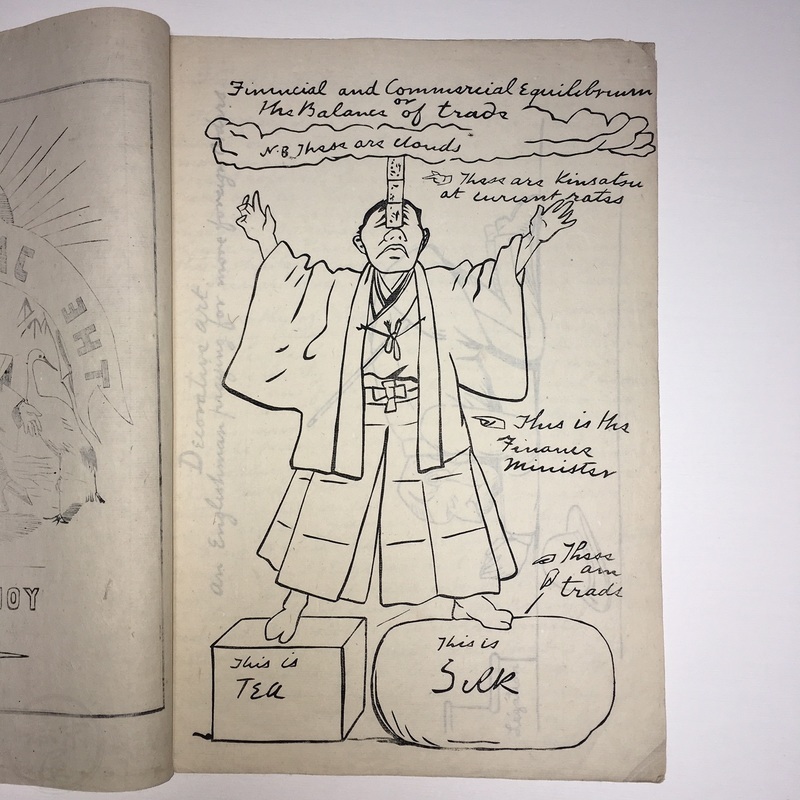 Financial and Commercial Equilibrium
or
the Balance of trade
N.B. These are clouds
These are Kinsatsu
at current rates
This is the
Finance
Minister
These
are
trade
This is
TEA
This is
Silk
Decorative art.
an Englishman for more foreign
THE